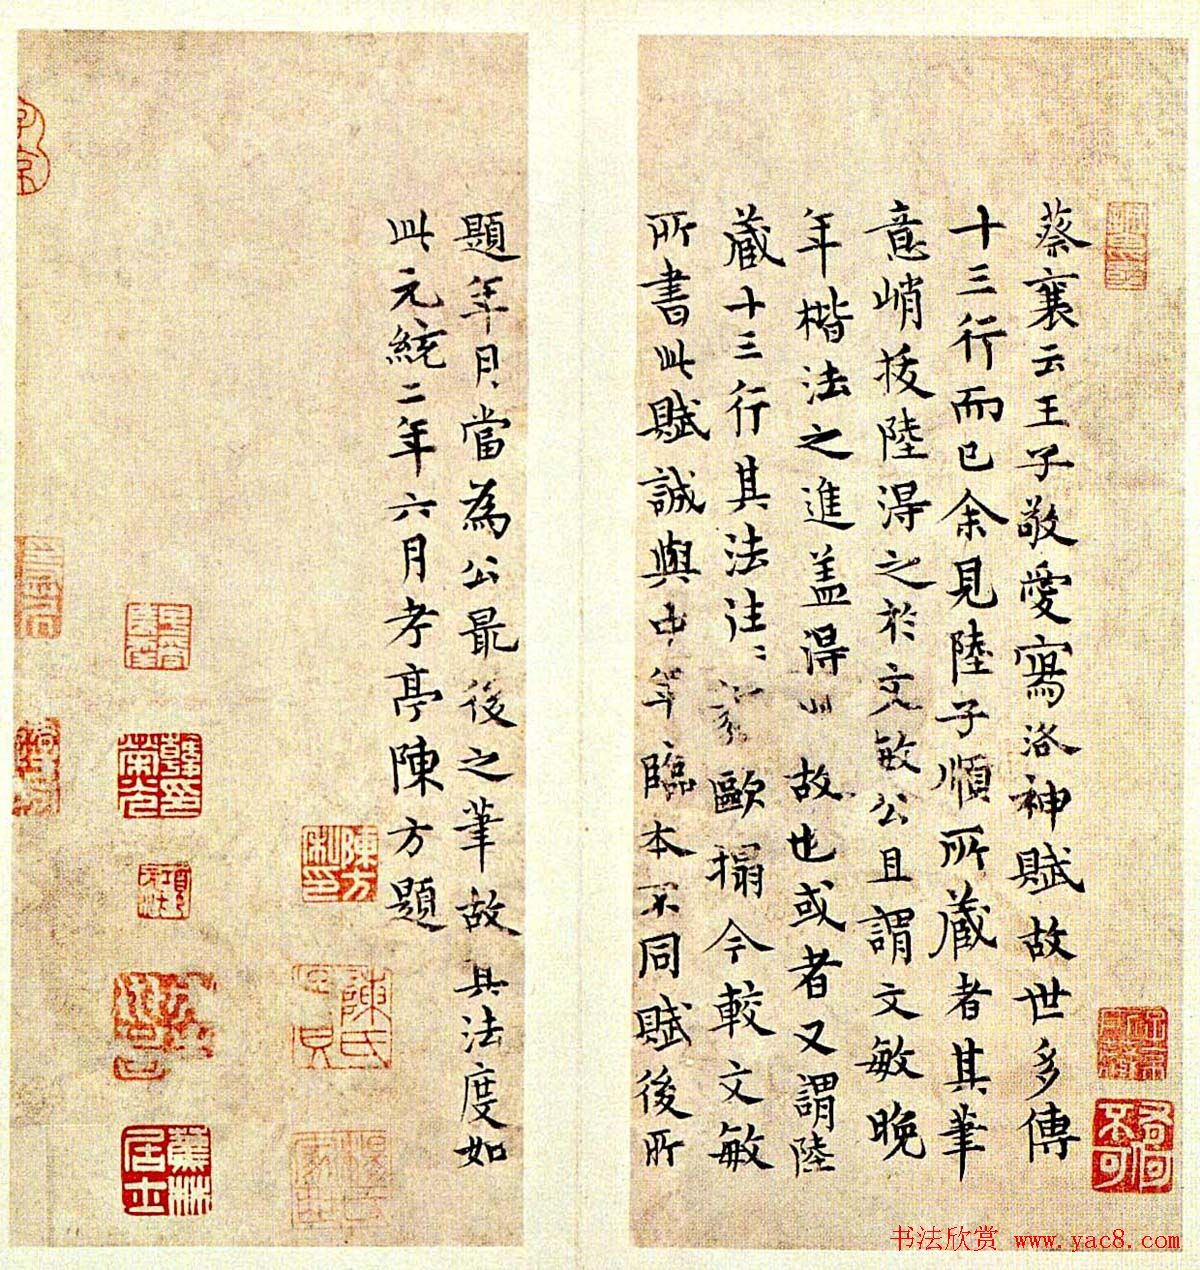 蔡襄云王子敬愛寫洛神賦故世多傳
十三行而已余見陸子順所藏者其筆
意峭拔陸淂之於文敏公且謂文敏晚
年楷法之進盖淂 故也或者又謂陸
藏十三行其法注 歐搨今較文敏
所書此賦誠與中年臨本不同賦後所
題年月當為公最後之筆故其法度如
此元統二年六月孝亭陳方題
陳方
陳氏
蕉林居士
書法欣賞 www.yac8.com